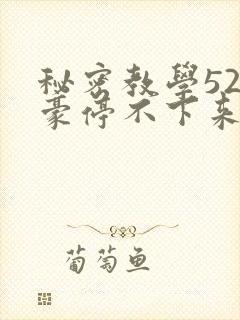 秘密教學52
豪停不下来
葡萄鱼